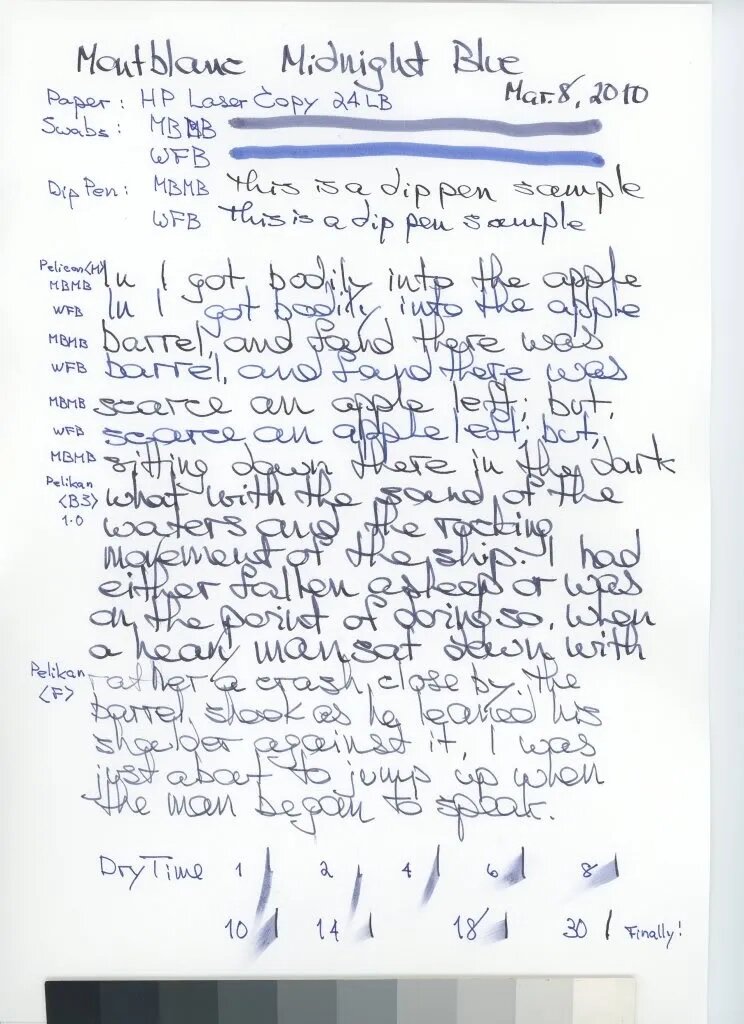 Montblanc Midnight Blue
Mar. 8, 2010
Paper: HP LaserCopy 24LB
Swabs: MBMB
WFB
Dip Pen: MBMB This is a dip pen sample
WFB This is a dip pen sample
Pelican <M>
MBMB In I got bodily into the apple
WFB In I got bodily into the apple
MBMB barrel, and found there was
WFB barrel, and found there was
MBMB scarce an apple left; but,
WFB scarce an apple left; but,
MBMB sitting down there in the dark
Pelikan <B3> 1.0 what with the sound of the
waters and the rocking
movement of the ship. I had
either fallen asleep or was
on the point of doing so. When
a heavy man sat down with
Pelikan <F> rather a crash close by. The
barrel shook as he leaned his
shoulder against it, I was
just about to jump up when
the man began to speak.
Dry Time 1 2 4 6 8
10 14 18 30 Finally!